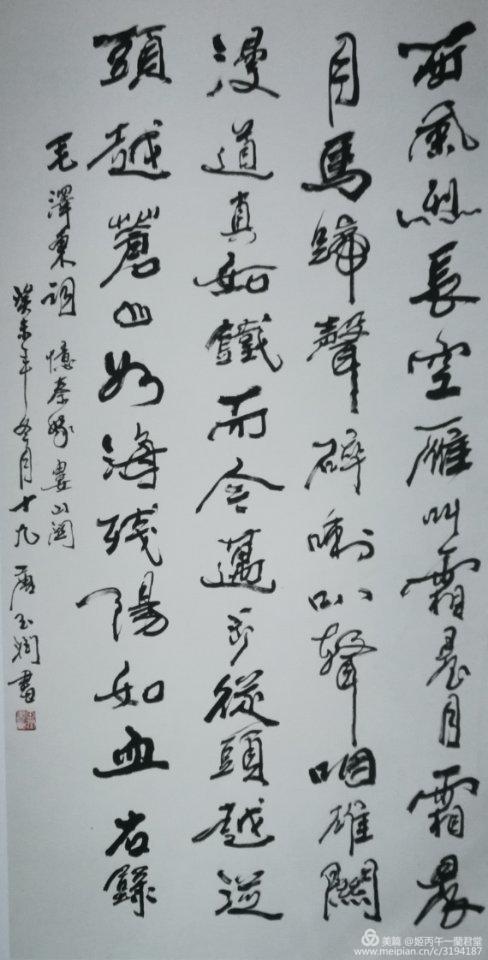 西風烈長空雁叫霜晨月霜晨
月馬蹄聲碎喇叭聲咽雄關
漫道真如鐵而今邁步從頭越從
頭越蒼山如海殘陽如血右錄
毛澤東詞 憶秦娥 婁山關
癸未年冬月十九 玉 書
美篇 @姬丙午一蘭君堂
www.meipian.cn/c/3194187